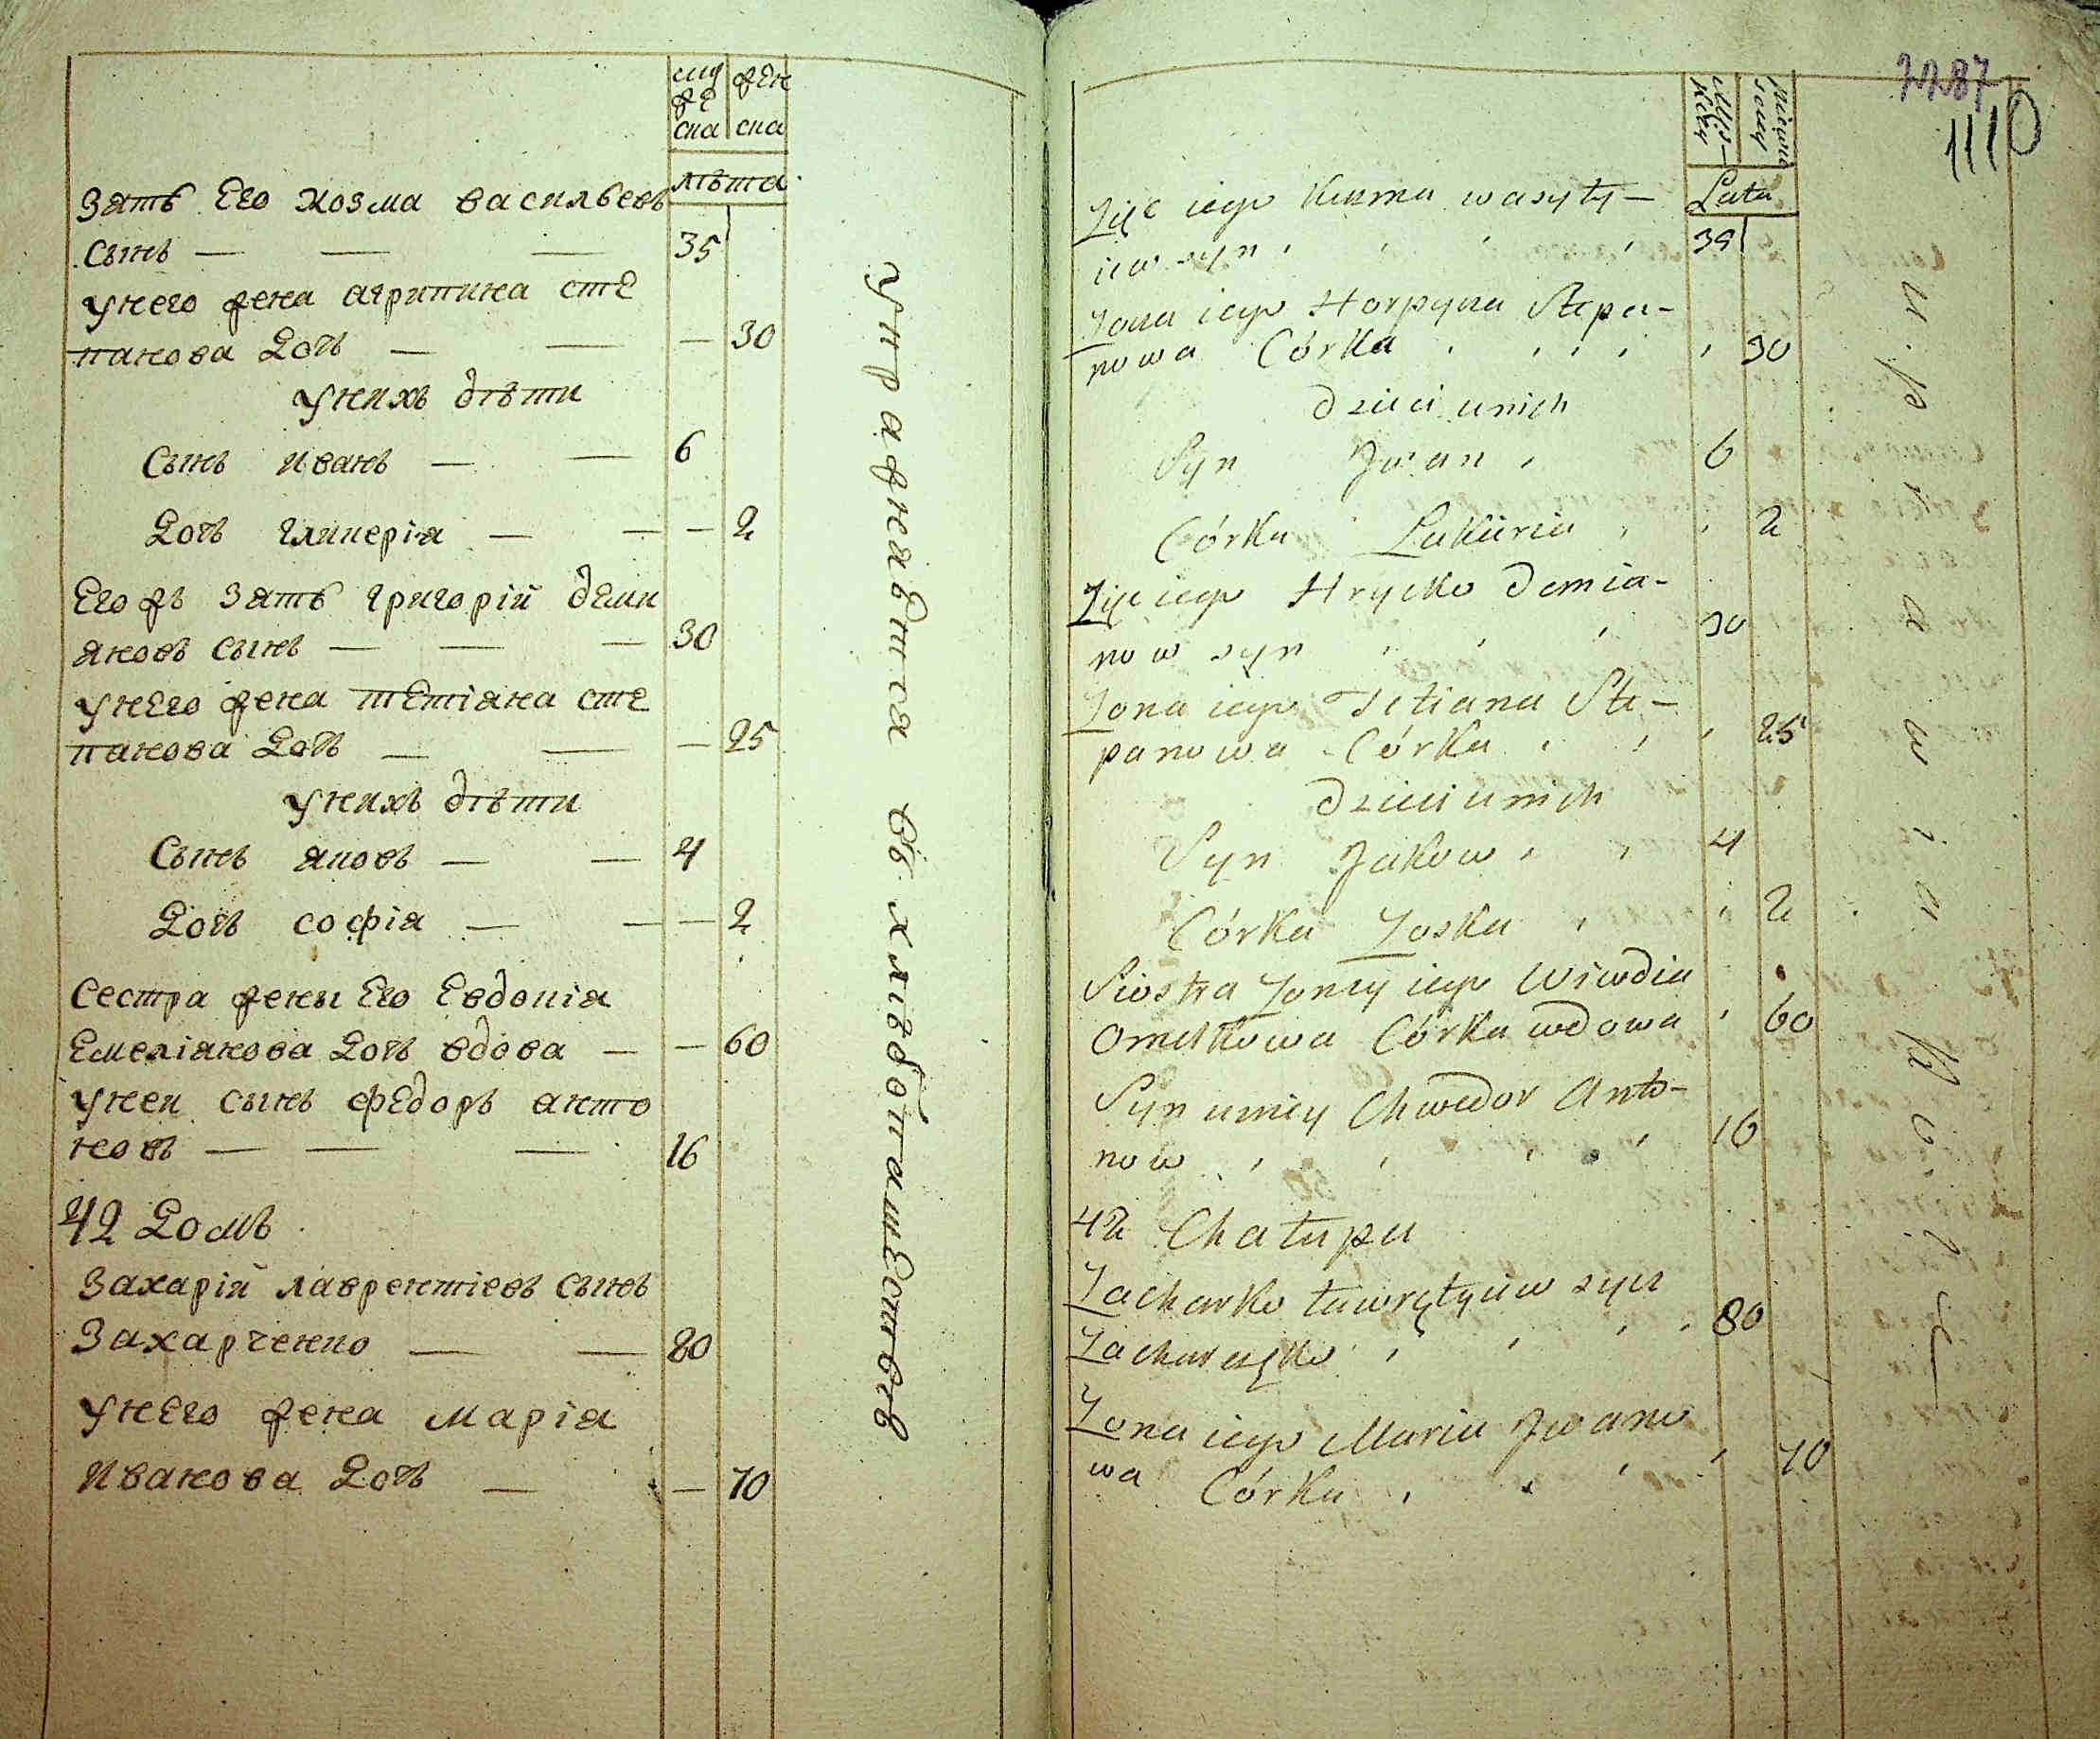 муж женс
же
ска ска
лѣта
Зять Его козма васильевъ
сынъ — — — 35
унего жена агрипина сте
панова дочь — — — 30
унихъ дѣти
сынъ иванъ — — 6
дочь гликерія — — — 2
Егожъ зять григорій деми
яновъ сынъ — — — 30
унего жена тетіяна сте
панова дочь — — — 25
унихъ дѣти
сынъ яковъ — — 4
дочь софія — — — 2
сестра жены Его Евдокія
Емеліянова дочь вдова — — 60
унеи сынъ федоръ анто
новъ — — — 16
42 домъ
Захарій лаврентіевъ сынъ
Захарченко — — 80
унего жена марія
иванова дочь — — 70
упражняются въ хлѣбопашествѣ
2287
1110
Męs-
key
Lata
Zięć iego Kuzma wasyły-
iew syn 35
Zona iego Horpyna Stepa-
nowa Córka 30
Dzieci unich
Syn Jwan 6
Córka Lukiiria 2
Zięć iego Hrycko Demia-
now syn 30
Zona iego Tetiana Ste-
panowa Córka 25
Dzieci unich
Syn Jakow 4
Córka Zoska 2
Siostra Zony iego Wiwdia
Omelkowa Córka wdowa 60
Syn uniey Chwedor Anto-
now 16
42 Chałupa
Zacharko ławrętyiiw syn
Zacharczęko 80
Zona iego Maria Jwano
wa Córka 70
uprawia